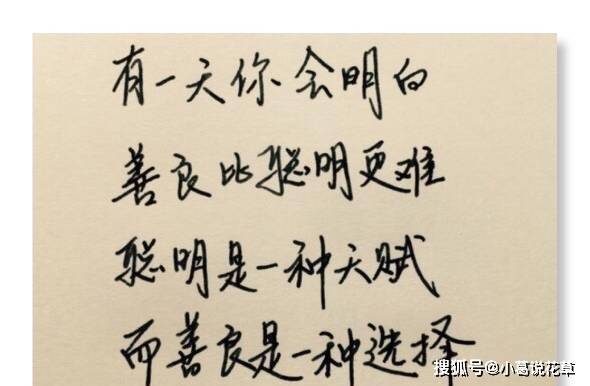 有一天你会明白
善良比聪明更难
聪明是一种天赋
而善良是一种选择
搜狐号@小葛说花草